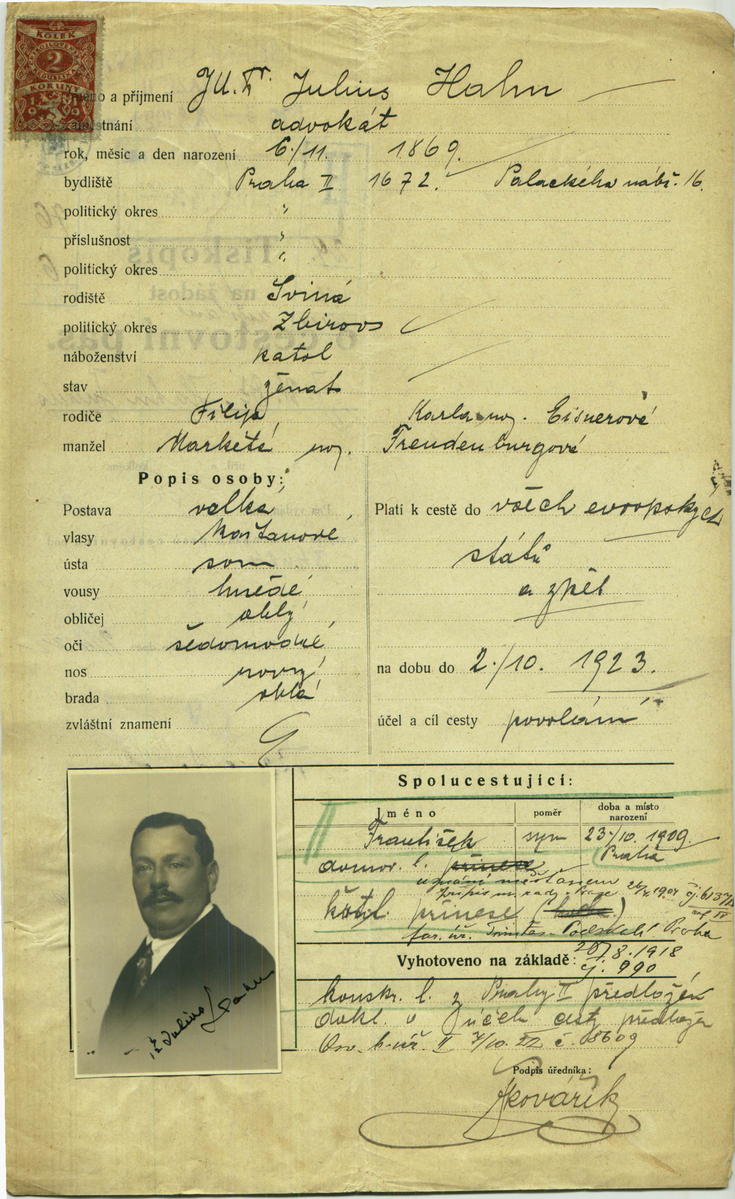 KOLEK
2
KORUNY
1919
jméno a příjmení JU.Dr. Julius Hahn
zaměstnání advokát
rok, měsíc a den narození 6./11. 1869.
bydliště Praha II 1672. Palackého nábř. 16.
politický okres "
příslušnost "
politický okres "
rodiště Sviná
politický okres Zbirov
náboženství katol
stav ženat
rodiče Filip, Karla roz. Eisnerové
manžel Markéta roz. Freudenburgová
Popis osoby:
Postava velká
vlasy kaštanové
ústa
vousy hnědé
obličej oblý
oči šedomodré
nos rovný
brada oblá
zvláštní znamení
Platí k cestě do všech evropských
států
a zpět
na dobu do 2./10. 1923.
účel a cíl cesty povolání
Spolucestující:
Jméno poměr doba a místo narození
František syn 23./10. 1909.
Praha
domov. l.
křtl. přinese
Praha
Vyhotoveno na základě: 20/8.1918
čj. 990
konskr. l. z Prahy II předložen
dokl. o účelu cesty předložen
Podpis úředníka:
Kovářík
Dr Julius Hahn